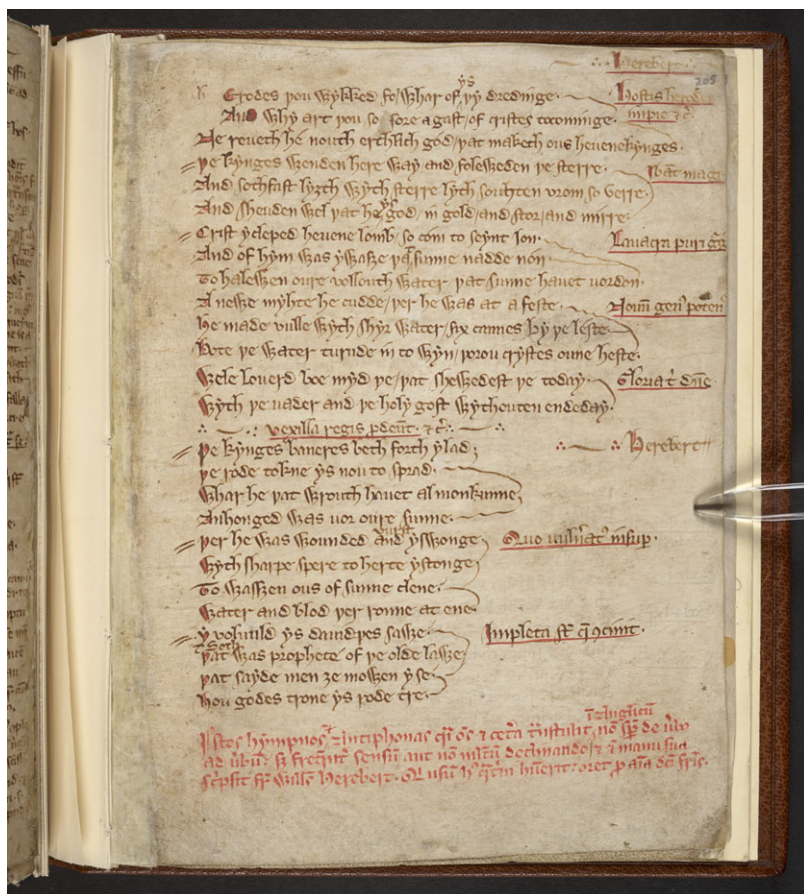 Herebert
205
Erodes þou wykked fo / whar of ys þy dredinge
Hostis herodes
And why art þou so sore agast / of cristes tocominge
impie &c.
Ne reveth he nouth erthlich god / þat maketh ous hevenekynges
þe kynges wenden here way and foleweden þe sterre
Ibāt magi
And sothfast lyzth wyth sterre lyth souhten vrom so verre
And sheuden wel þat he ys god / in gold / and stor / and mirre
Crist ycleped hevene lomb / so com to seynt Jon
Lavacra puri g̃g̃
And of hym was ywasze þat sunne nadde non
To halewen oure vollouth water / þat sunne havet uordon
A newe myhte he cudde / þer he was at a feste
Novū gen⁹ potēn
He made vulle wyth shyr water / six cannes by þe leste
Bote þe water turnde in to wyn / þorou crystes oune heste
Wele Louerd boe myd þe / þat shewedest þe today
Gloria t̃ dñe
Wyth þe uader and þe holy gost wythouten endeday
vexilla regis ꝓdeūt &c.
þe kynges baneres beth forth ylad
Herebert
þe rode tokne ys nou to sprad
Whar he þat wrouth havet al monkunne
Anhonged was uor oure sunne
þer he was wounded and vurst yswonge
Quo vulñat⁹ insup
Wyth sharpe spere to herte ystonge
To wasszen ous of sunne clene
Water and blod þer ronne at ene
Yvoluuld ys davidþes sawe
Impleta st̃ q̃ ꝯcinit
þat was prophete of þe olde lawe
þat sayde men ze mowen yse
Hou godes trone ys rode tre
Istos hympnos & Antiphonas q̃si oĩs & cetã t̃nstulit ī Anglicū nõ sp̃ de ũbo
ad ũbū s; freq̃nt̃ sensū aut nõ mltū declinando & ĩ manu sua
sc̃psit fr̃ Will̃s Herebert. Qi usũ h⁹ q̃t̃ni hũerit oret ꝓ aĩa dc̃i fr̃is